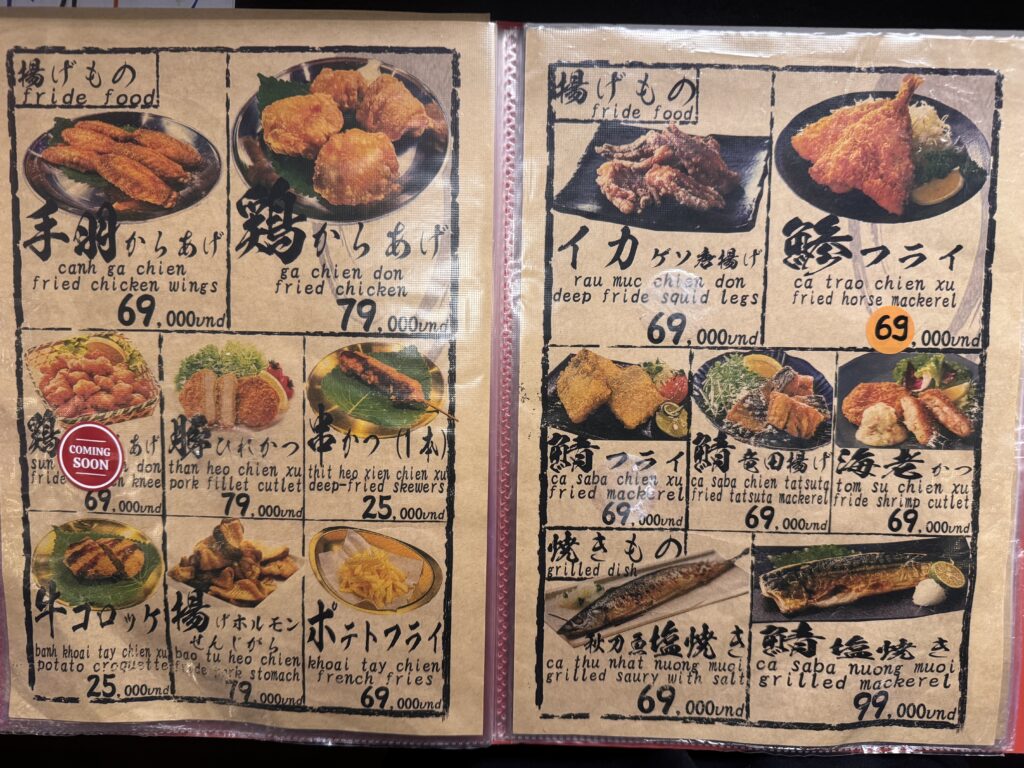 揚げもの
fride food
手羽からあげ
canh ga chien
fried chicken wings
69,000vnd
鶏からあげ
ga chien don
fried chicken
79,000vnd
鶏 あげ
COMING
SOON
sun don
fride knee
69,000vnd
豚ひれかつ
than heo chien xu
pork fillet cutlet
79,000vnd
串かつ(1本)
thit heo xien chien xu
deep-fried skewers
25,000vnd
牛コロッケ
banh khoai tay chien xu
potato croquette
25,000vnd
揚げホルモン
せんじがら
bao tu heo chien
fride pork stomach
79,000vnd
ポテトフライ
khoai tay chien
french fries
69,000vnd
揚げもの
fride food
イカゲソ唐揚げ
rau muc chien don
deep fride squid legs
69,000vnd
鯵フライ
ca trao chien xu
fried horse mackerel
69,000vnd
鯖フライ
ca saba chien xu
fried mackerel
69,000vnd
鯖竜田揚げ
ca saba chien tatsuta
fried tatsuta mackerel
69,000vnd
海老かつ
tom su chien xu
fride shrimp cutlet
69,000vnd
焼きもの
grilled dish
秋刀魚塩焼き
ca thu nhat nuong muoi
grilled saury with salt
69,000vnd
鯖塩焼き
ca saba nuong muoi
grilled mackerel
99,000vnd